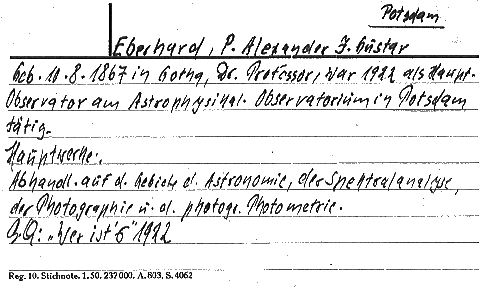 Potsdam
Eberhard, P. Alexander J. Gustav
Geb. 10.8.1867 in Gotha, Dr. Professor, war 1922 als Haupt-
Observator am Astrophysikal. Observatorium in Potsdam
tätig.
Hauptwerke:
Abhandl. auf d. Gebiete d. Astronomie, der Spektralanalyse,
der Photographie u. d. photogr. Photometrie.
"Wer ist's" 1922
Reg. 10. Stichnote. 1. 50. 237000. A. 803. S. 4062